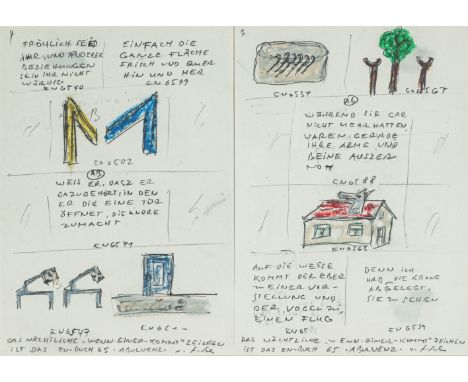 FRÖHLICH SEID
IHR, UND ANDERER
BEZIEHUNGEN
SEID IHR NICHT
WÜRDIG
EN6540
EINFACH DIE
GANZE FLÄCHE
FRISCH UND QUER
HIN UND HER
EN6599
B
EN6502
AB
WEIS ER, DASZ ER
DAZUGEHÖRT, IN DEN
ER DIE EINE TÜR
ÖFFNET, DIE ANDRE
ZUMACHT
EN6541
B
EN6547
DAS NÄCHTLICHE „WENN-EINER-KOMMT“ ZEICHEN
IST DAS EN-BUCH 65
EN6537
EN6567
AB
WÄHREND SIE GAR
NICHT MEHR HATTEN
WAREN GERADE
IHRE ARME UND
BEINE AUSZER
NOT
EN6588
EN6565
AUF DIE WEISE
KOMMT DER EBER
ZU EINER VOR-
STELLUNG UND
DER VOLL ZU
EINEN FLUG
DENN ICH
HAB DIE KRONE
ABGELEGT,
SIE ZU SEHEN
EN6539
DAS NÄCHTLICHE „WENN-EINER-KOMMT“ ZEICHEN
IST DAS EN-BUCH 65